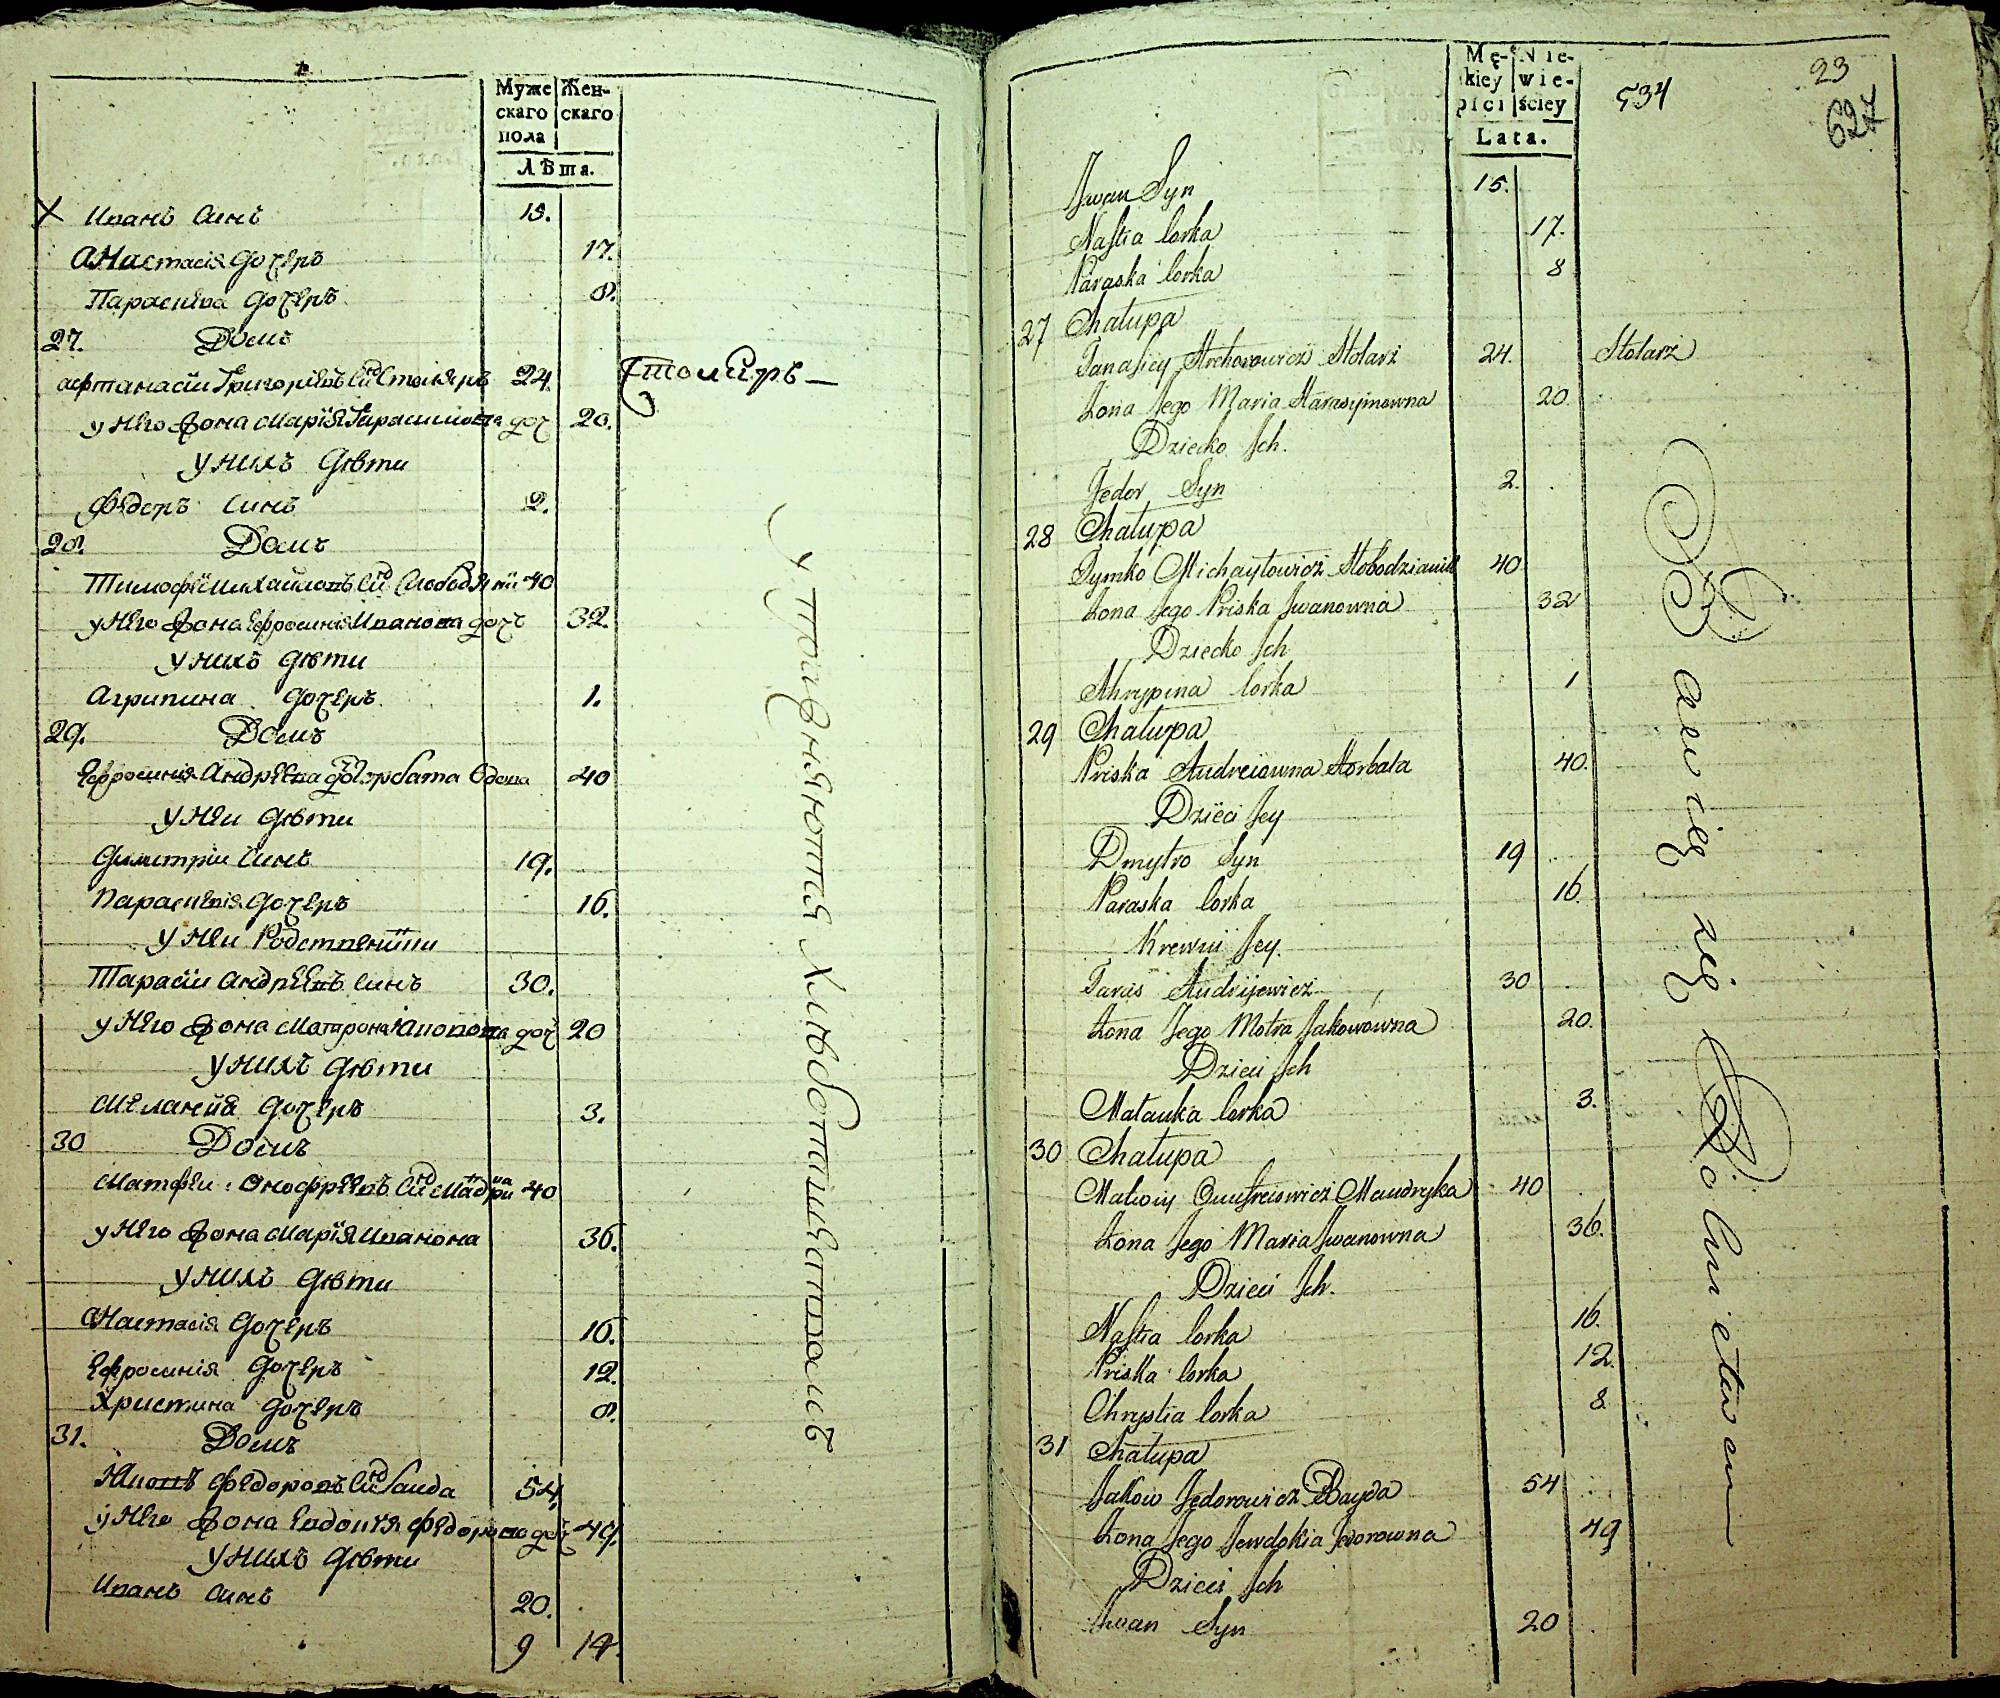 Муже
скаго
пола
Жен-
скаго
Лѣта.
Иванъ Синъ 15.
Анастасія дочеръ 17.
Параскева дочеръ 8.
27. Домъ
Афтанасіи Григоріевъ Синъ Столяръ 24. Столяръ
у Него Жона Марія Гарасимова доч 20.
у нихъ дѣти
Федоръ Синъ 2.
28. Домъ
Тимофѣи Михаиловъ Синъ Слободяни 40
у Него Жона Ефросинія Иванова дочь 32.
у нихъ дѣти
Агрипина дочеръ 1.
29. Домъ
Ефросинія Андрѣева доч Горбата вдова 40
у Неи дѣти
Димитріи Синъ 19.
Параскевія дочеръ 16.
у Неи Родственники
Тарасіи Андрѣевъ Синъ 30.
у Него Жона Матрона Яковова доч 20
у нихъ дѣти
Меланія дочеръ 3.
30 Домъ
Матфеи Онофрѣевъ Синъ Мандрика 40
у Него Жона Марія Иванова 36.
у нихъ дѣти
Анастасія дочеръ 16.
Ефросинія дочеръ 12.
Христина дочеръ 8.
31. Домъ
Яковъ Федоровъ Синъ Баида 54.
у Него Жона Евдокія Федорова доч 49.
у нихъ дѣти
Иванъ Синъ 20.
9 14.
Упражняются Хлѣбопашеством
Mę-
kiey
płci
Nie-
wie-
ściey
Lata.
534
23
627
Jwan Syn 15.
Nastia Corka 17.
Paraska Corka 8
27 Chałupa
Tanasiey Hrehorowicz Stolarz 24. Stolarz
Żona Jego Maria Harasymowna 20
Dziecko Jch.
Fedor Syn 2.
28 Chałupa
Tymko Michayłowicz Słobodzianik 40
Żona Jego Priska Jwanowna 32
Dziecko Jch
Ahrypina Corka 1
29 Chałupa
Priska Andreiowna Horbata 40.
Dzieci Jey
Dmytro Syn 19
Paraska Corka 16.
Krewni Jey.
Taras Andrijewicz 30
Żona Jego Motra Jakowowna 20.
Dzieci Jch
Małanka Corka 3.
30 Chałupa
Matwiy Onufreiowicz Mandryka 40
Żona Jego Maria Jwanowna 36.
Dzieci Jch.
Nastia Corka 16.
Priska Corka 12.
Chrystia Corka 8
31 Chałupa
Jakow Fedorowicz Bayda 54
Żona Jego Jewdokia Fedorowna 49
Dzieci Jch
Jwan Syn 20
Bawią się Rolnictwem